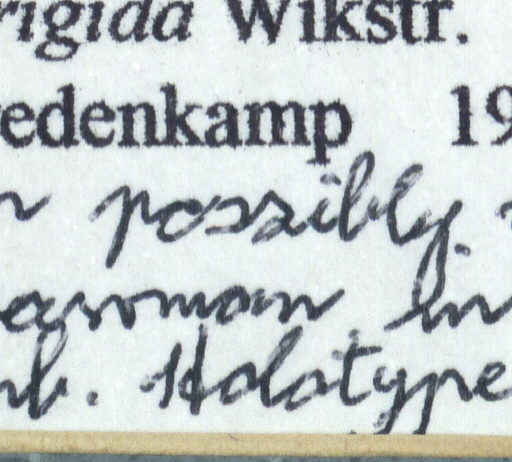 rigida Wikstr.
edenkamp 19
possibly
in
b. Holotype